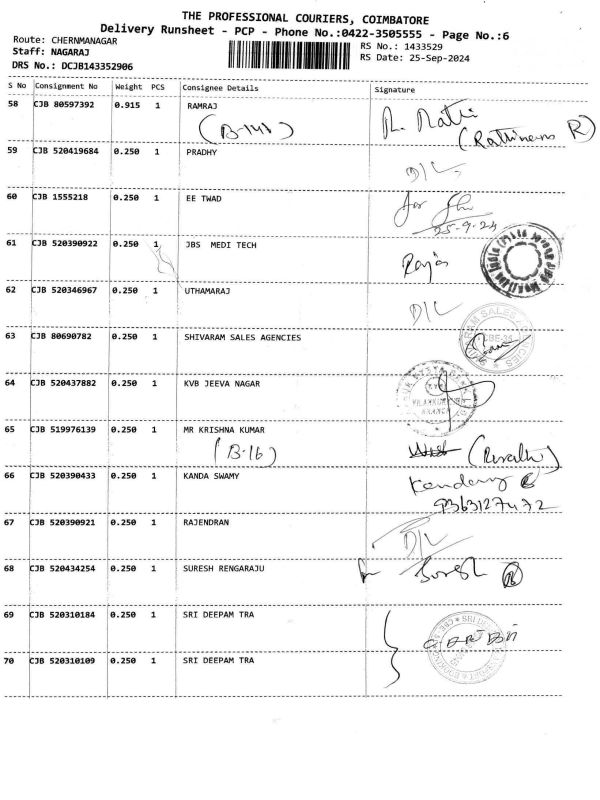 THE PROFESSIONAL COURIERS, COIMBATORE
Delivery Runsheet - PCP - Phone No.:0422-3505555 - Page No.:6
Route: CHERNMANAGAR
Staff: NAGARAJ
DRS No.: DCJB143352906
RS No.: 1433529
RS Date: 25-Sep-2024
S No Consignment No Weight PCS Consignee Details Signature
58 CJB 80597392 0.915 1 RAMRAJ
(B-141)
59 CJB 520419684 0.250 1 PRADHY
D/L
60 CJB 1555218 0.250 1 EE TWAD
25-9-24
61 CJB 520390922 0.250 1 JBS MEDI TECH
Raja
62 CJB 520346967 0.250 1 UTHAMARAJ
D/L
63 CJB 80690782 0.250 1 SHIVARAM SALES AGENCIES
64 CJB 520437882 0.250 1 KVB JEEVA NAGAR
65 CJB 519976139 0.250 1 MR KRISHNA KUMAR
(B-16)
66 CJB 520390433 0.250 1 KANDA SWAMY
9363127472
67 CJB 520390921 0.250 1 RAJENDRAN
D/L
68 CJB 520434254 0.250 1 SURESH RENGARAJU
Suresh
69 CJB 520310184 0.250 1 SRI DEEPAM TRA
70 CJB 520310109 0.250 1 SRI DEEPAM TRA